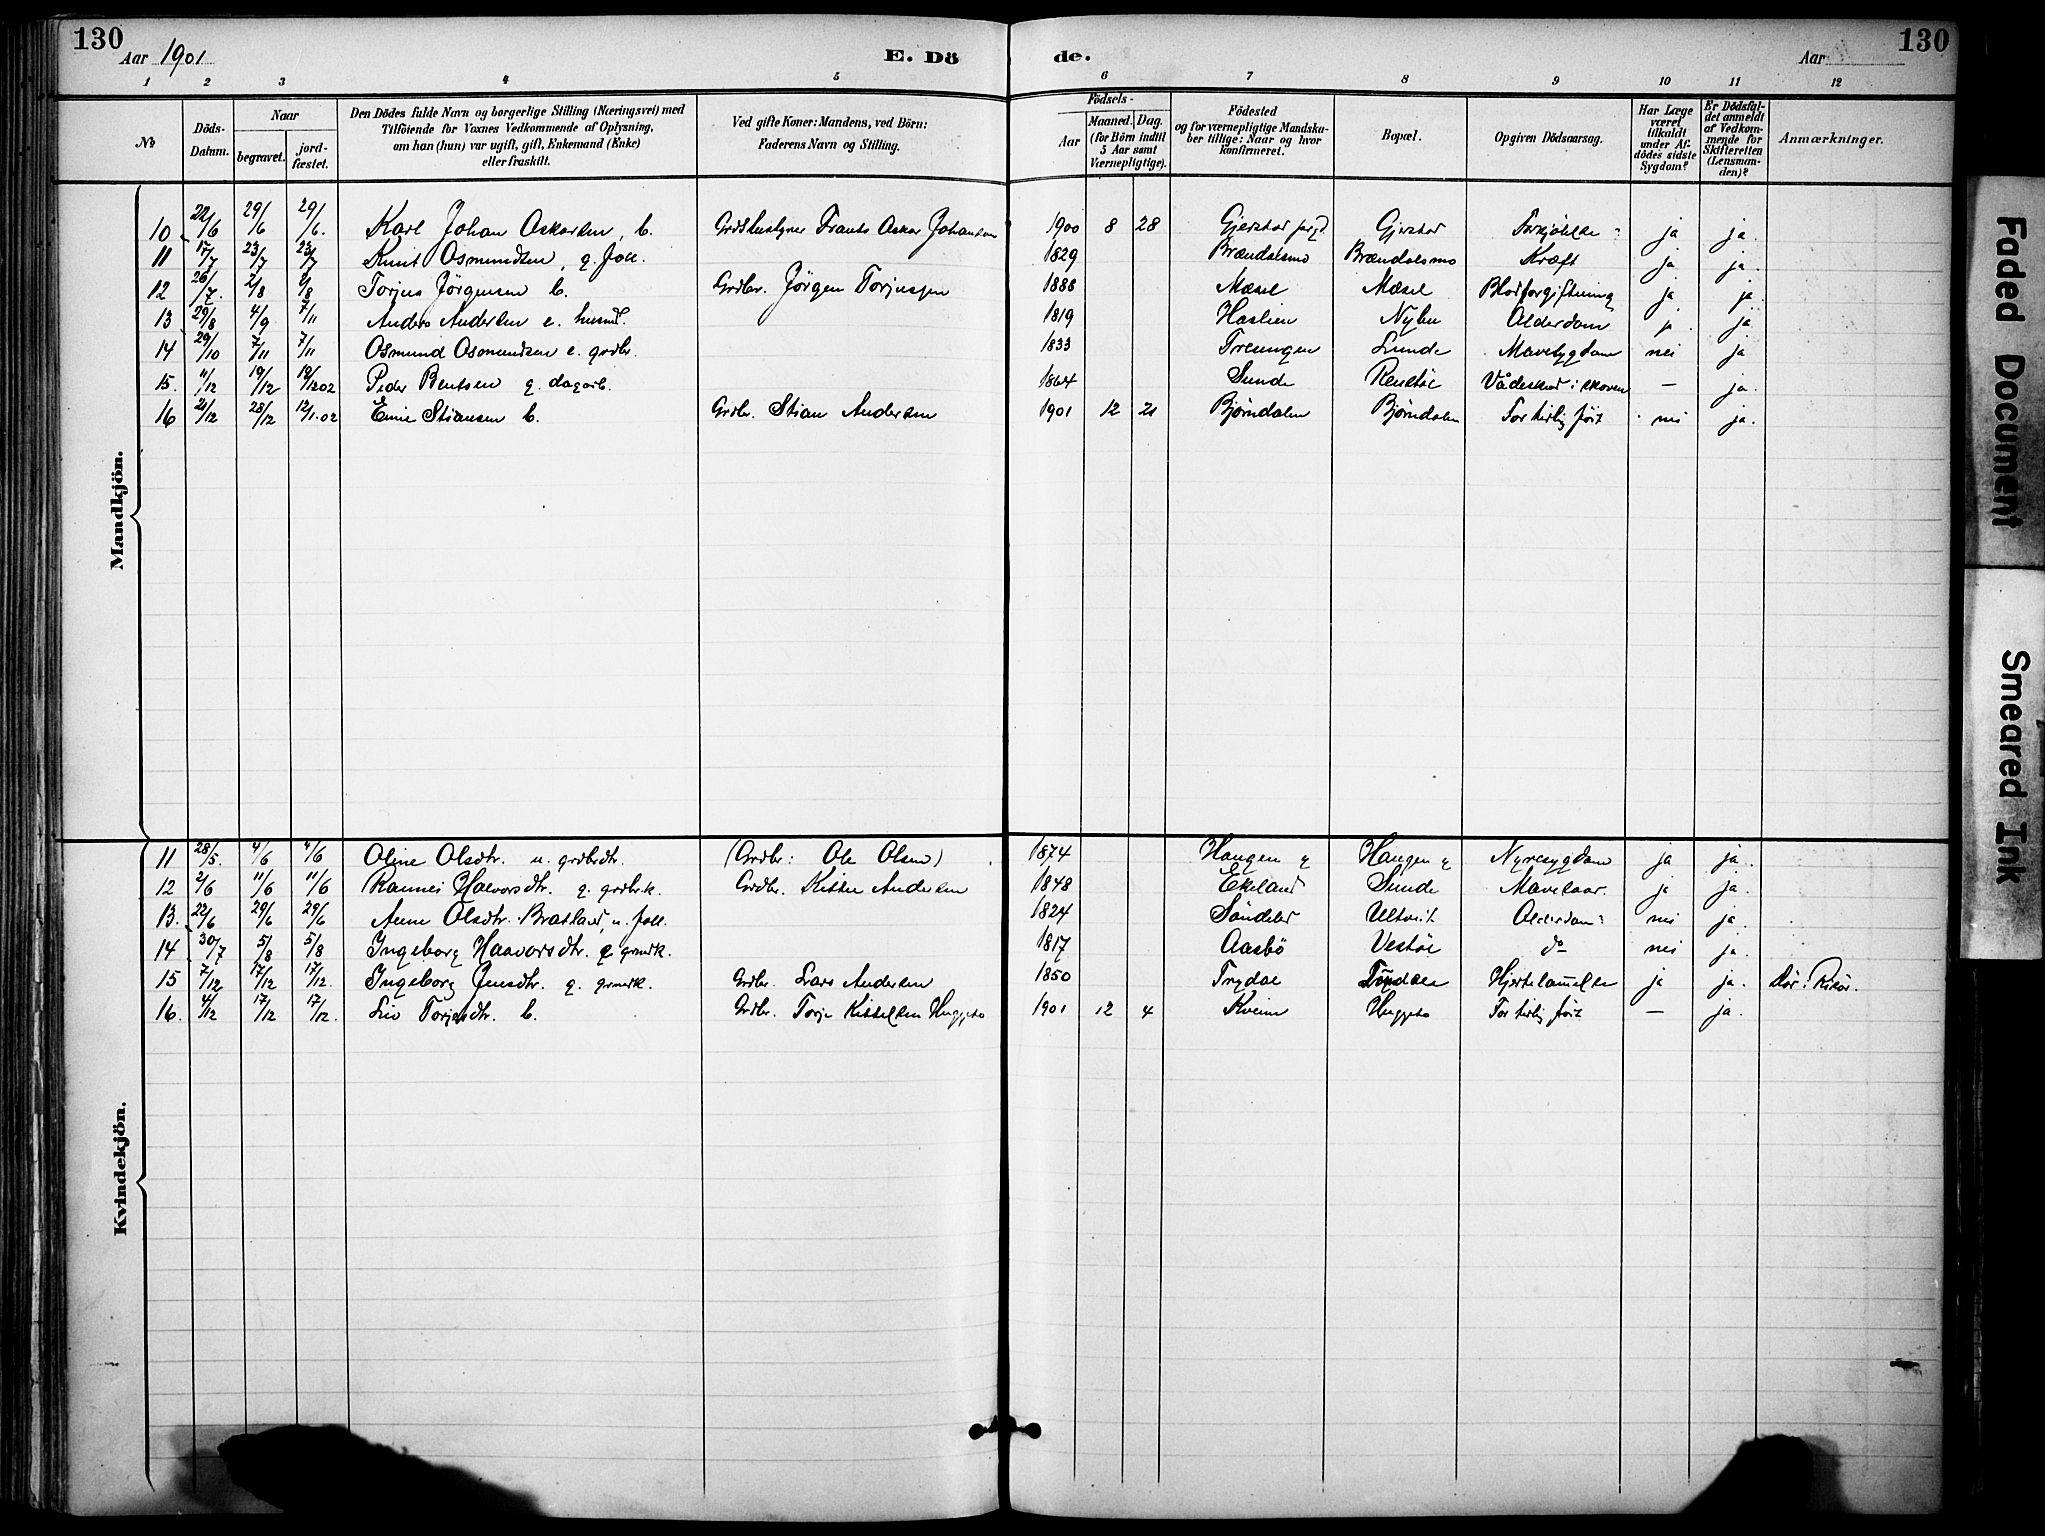 130
Aar 1901
E. Dö
de.
Aar
130
1 2 3 4 5 6 7 8 9 10 11 12
№
Döds-Datum.
Naar
begravet.
jord-fæstet.
Den Dödes fulde Navn og borgerlige Stilling (Næringsvei) med
Tilföiende for Voxnes Vedkommende af Oplysning,
om han (hun) var ugift, gift, Enkemand (Enke)
eller fraskilt.
Ved gifte Koner: Mandens, ved Börn:
Faderens Navn og Stilling.
Födsels-
Aar
Maaned. Dag.
(for Börn indtil
5 Aar samt
Værnepligtige).
Födested
og for værnepligtige Mandska-
ber tillige: Naar og hvor
konfirmeret.
Bopæl.
Opgiven Dödsaarsag.
Har Læge
været
tilkaldt
under Af-
dödes sidste
Sygdom?
Er Dödsfal-
det anmeldt
af Vedkom-
mende for
Skifteretten
(Lensman-
den)?
Anmærkninger.
Mandkjön.
10 22/6 29/6 29/6. Karl Johan Oskarsen, b. Frants Oskar Johansen 1900 8 28 Gjerstad Gjerstad ja ja.
11 17/7 23/7 23/7 Knut Osmundsen, g. 1829 Brændalsmo Brændalsmo Kræft ja ja.
12 26/7. 2/8 2/8 Torjus Jörgensen b. Grdbr. Jörgen Torjussen 1888 Mæsel Mæsel Blodforgiftning ja ja.
13 29/8 4/9 7/11 Anders Andersen e. husmd. 1819 Haslien Nylen Alderdom ja ja
14 29/10 7/11 7/11 Osmund Osmundsen e. grdbr. 1833 Treungen Lunde Mavesygdom nei ja
15. 11/12 19/12 Peder Bentsen g. dagarb. 1864 Sunde Renstöl Vådeskud i skoven — ja.
16 21/12 28/12 12/1.02 Emil Stiansen b. Grdbr. Stian Andersen 1901 12 21 Björndalen Björndalen For tidlig født nei ja.
Kvindekjön.
11 28/5. 4/6 4/6 Oline Olsdtr. u. grdbrdtr. (Grdbr: Ole Olsen) 1874 Haugen Haugen Nyresygdom ja ja.
12 2/6 11/6 11/6 Rannei Halvorsdtr. g. grdbr.k. Grdbr. Kittil Andersen 1848 Ekeland Sunde Mavesaar. ja ja.
13. 22/6 29/6 29/6 Anne Olsdtr. Bratland, u. 1824 Söndeled Ultveit Alderdom nei ja.
14 30/7 5/8 5/8 Ingeborg Haavorsdtr. 1817 Aasbö Vestöl do nei ja.
15 7/12 17/12 17/12. Ingeborg Jensdtr. g. Grdbr. Lars Andersen 1850 Trydal Hjertelammelse ja ja. Dör: Risör.
16. 4/12 17/12 17/12. Liv Torjesdtr. b. Grdbr. Torje Kittelsen Huggeto 1901 12 4 Kveim Huggeto For tidlig født — ja.
Faded Document
Smeared Ink